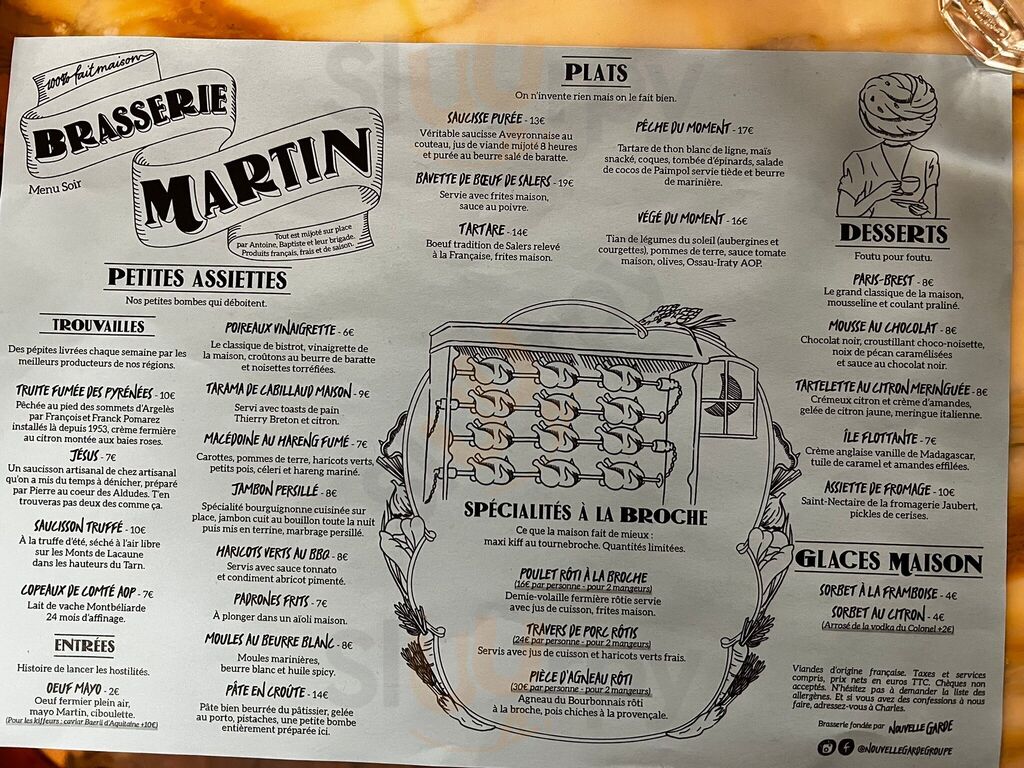 100% fait maison
BRASSERIE
MARTIN
Menu Soir
Tout est mijoté sur place
par Antoine, Baptiste et leur brigade.
Produits français, frais et de saison.
PETITES ASSIETTES
Nos petites bombes qui déboitent.
TROUVAILLES
Des pépites livrées chaque semaine par les
meilleurs producteurs de nos régions.
TRUITE FUMÉE DES PYRÉNÉES - 10€
Pêchée au pied des sommets d'Argelès
par François et Franck Pomarez
installés là depuis 1953, crème fermière
au citron montée aux baies roses.
JÉSUS - 7€
Un saucisson artisanal de chez artisanal
qu'on a mis du temps à dénicher, préparé
par Pierre au coeur des Aldudes. T'en
trouveras pas deux des comme ça.
SAUCISSON TRUFFÉ - 10€
À la truffe d'été, séché à l'air libre
sur les Monts de Lacaune
dans les hauteurs du Tarn.
COPEAUX DE COMTÉ AOP - 7€
Lait de vache Montbéliarde
24 mois d'affinage.
ENTRÉES
Histoire de lancer les hostilités.
OEUF MAYO - 2€
Oeuf fermier plein air,
mayo Martin, ciboulette.
(Pour les kiffeurs : caviar Baerii d'Aquitaine +10€)
POIREAUX VINAIGRETTE - 6€
Le classique de bistrot, vinaigrette de
la maison, croûtons au beurre de baratte
et noisettes torréfiées.
TARAMA DE CABILLAUD MAISON - 9€
Servi avec toasts de pain
Thierry Breton et citron.
MACÉDOINE AU HARENG FUMÉ - 7€
Carottes, pommes de terre, haricots verts,
petits pois, céleri et hareng mariné.
JAMBON PERSILLÉ - 8€
Spécialité bourguignonne cuisinée sur
place, jambon cuit au bouillon toute la nuit
puis mis en terrine, marbrage persillé.
HARICOTS VERTS AU BBQ - 8€
Servis avec sauce tonnato
et condiment abricot pimenté.
PADRONES FRITS - 7€
À plonger dans un aïoli maison.
MOULES AU BEURRE BLANC - 8€
Moules marinières,
beurre blanc et huile spicy.
PÂTE EN CROÛTE - 14€
Pâte bien beurrée du pâtissier, gelée
au porto, pistaches, une petite bombe
entièrement préparée ici.
PLATS
On n'invente rien mais on le fait bien.
SAUCISSE PURÉE - 13€
Véritable saucisse Aveyronnaise au
couteau, jus de viande mijoté 8 heures
et purée au beurre salé de baratte.
BAVETTE DE BŒUF DE SALERS - 19€
Servie avec frites maison,
sauce au poivre.
TARTARE - 14€
Boeuf tradition de Salers relevé
à la Française, frites maison.
PÊCHE DU MOMENT - 17€
Tartare de thon blanc de ligne, maïs
snacké, coques, tombée d'épinards, salade
de cocos de Paimpol servie tiède et beurre
de marinière.
VÉGÉ DU MOMENT - 16€
Tian de légumes du soleil (aubergines et
courgettes), pommes de terre, sauce tomate
maison, olives, Ossau-Iraty AOP.
SPÉCIALITÉS À LA BROCHE
Ce que la maison fait de mieux :
maxi kiff au tournebroche. Quantités limitées.
POULET RÔTI À LA BROCHE
(16€ par personne - pour 2 mangeurs)
Demie-volaille fermière rôtie servie
avec jus de cuisson, frites maison.
TRAVERS DE PORC RÔTIS
(24€ par personne - pour 2 mangeurs)
Servis avec jus de cuisson et haricots verts frais.
PIÈCE D'AGNEAU RÔTI
(30€ par personne - pour 2 mangeurs)
Agneau du Bourbonnais rôti
à la broche, pois chiches à la provençale.
DESSERTS
Foutu pour foutu.
PARIS-BREST - 8€
Le grand classique de la maison,
mousseline et coulant praliné.
MOUSSE AU CHOCOLAT - 8€
Chocolat noir, croustillant choco-noisette,
noix de pécan caramélisées
et sauce au chocolat noir.
TARTELETTE AU CITRON MERINGUÉE - 8€
Crémeux citron et crème d'amandes,
gelée de citron jaune, meringue italienne.
ÎLE FLOTTANTE - 7€
Crème anglaise vanille de Madagascar,
tuile de caramel et amandes effilées.
ASSIETTE DE FROMAGE - 10€
Saint-Nectaire de la fromagerie Jaubert,
pickles de cerises.
GLACES MAISON
SORBET À LA FRAMBOISE - 4€
SORBET AU CITRON - 4€
(Arrosé de la vodka du Colonel +2€)
Viandes d'origine française. Taxes et services
compris, prix nets en euros TTC. Chèques non
acceptés. N'hésitez pas à demander la liste des
allergènes. Et si vous avez des confessions à nous
faire, adressez-vous à Charles.
Brasserie fondée par NOUVELLE GARDE
@NOUVELLEGARDEGROUPE